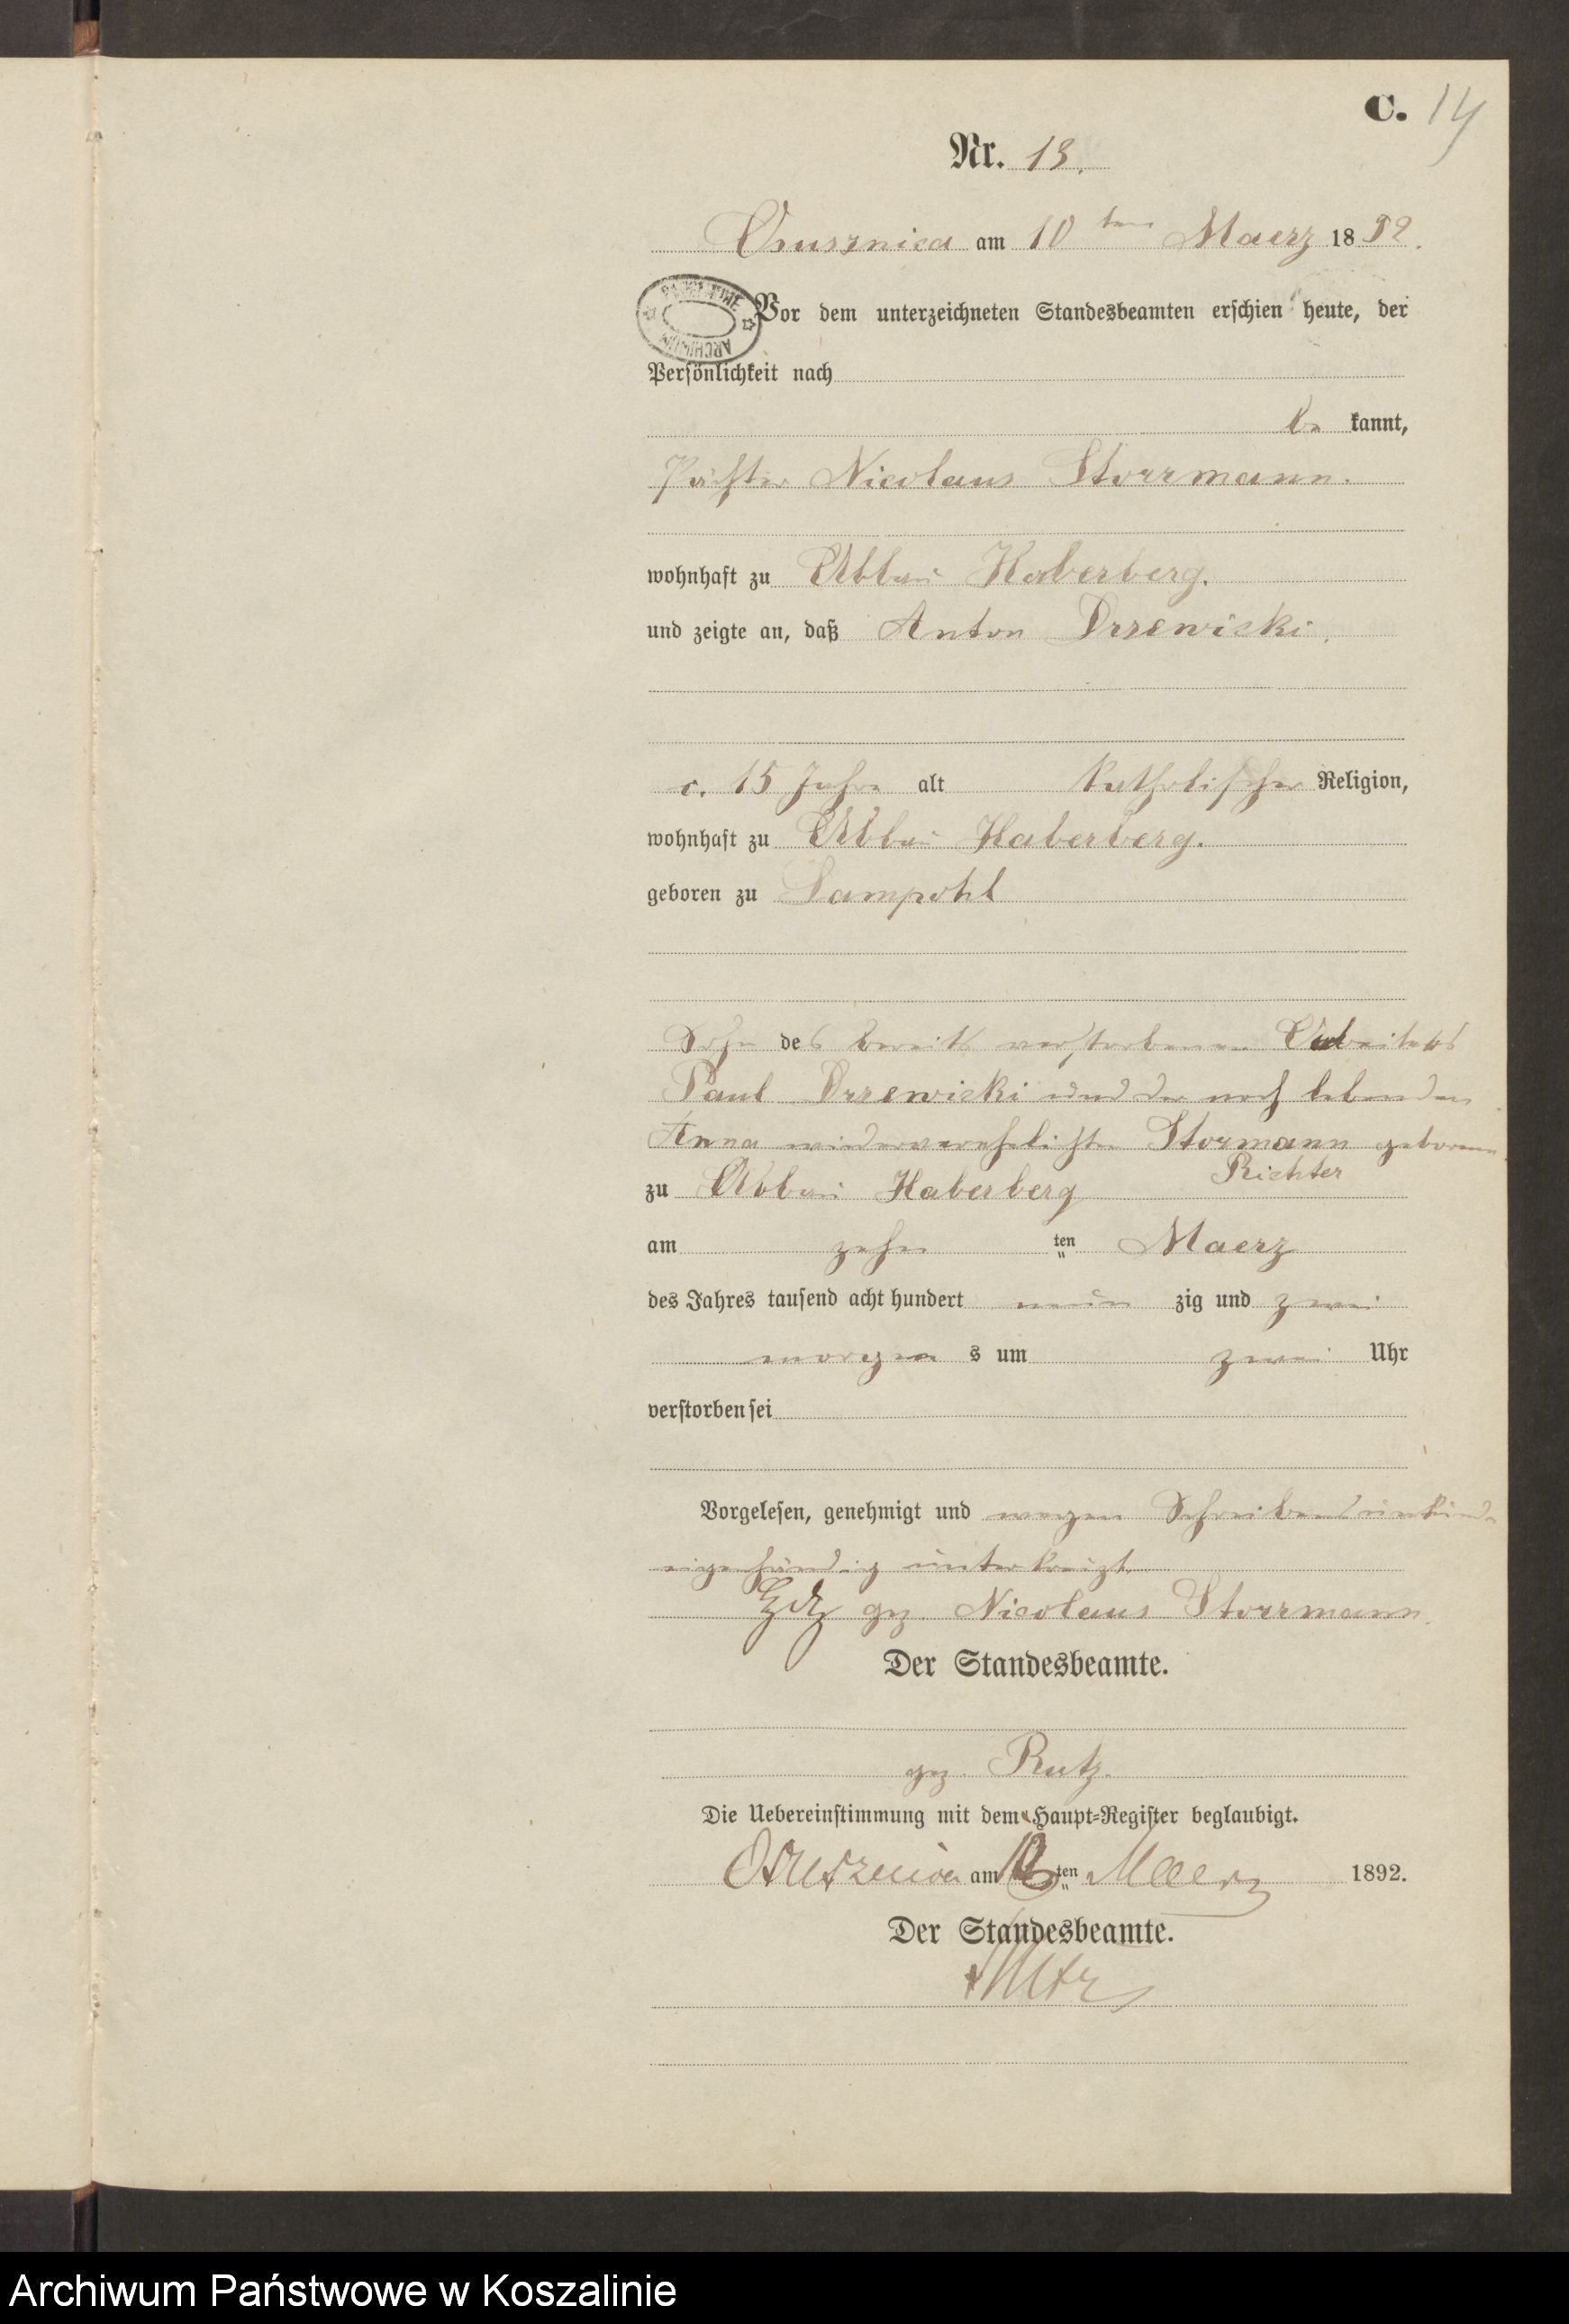 C. 14
Nr. 13.
Osusznica am 10 ten Maerz 1892.
Vor dem unterzeichneten Standesbeamten erschien heute, der
Persönlichkeit nach
be kannt,
Pächter Nicolaus Storrmann.
wohnhaft zu Abbau Haberberg.
und zeigte an, daß Anton Drzewicki.
c. 15 Jahre alt katholischer Religion,
wohnhaft zu Abbau Haberberg.
geboren zu Sampohl
Sohn des bereits verstorbenen Arbeiters
Paul Drzewicki und der noch lebenden
Anna wiederverehelichte Stormann geborene
Richter
zu Abbau Haberberg
am zehn ten Maerz
des Jahres tausend acht hundert neun zig und zwei
morgen s um zwei Uhr
verstorben sei
Vorgelesen, genehmigt und wegen Schreibensunkunde
eigenhändig unterkreuzt.
gez. Nicolaus Storrmann.
Der Standesbeamte.
gez. Rutz.
Die Uebereinstimmung mit dem Haupt-Register beglaubigt.
Osusznica am ten Maerz 1892.
Der Standesbeamte.
Rutz
ARCHIWUM PAŃSTWOWE
Archiwum Państwowe w Koszalinie